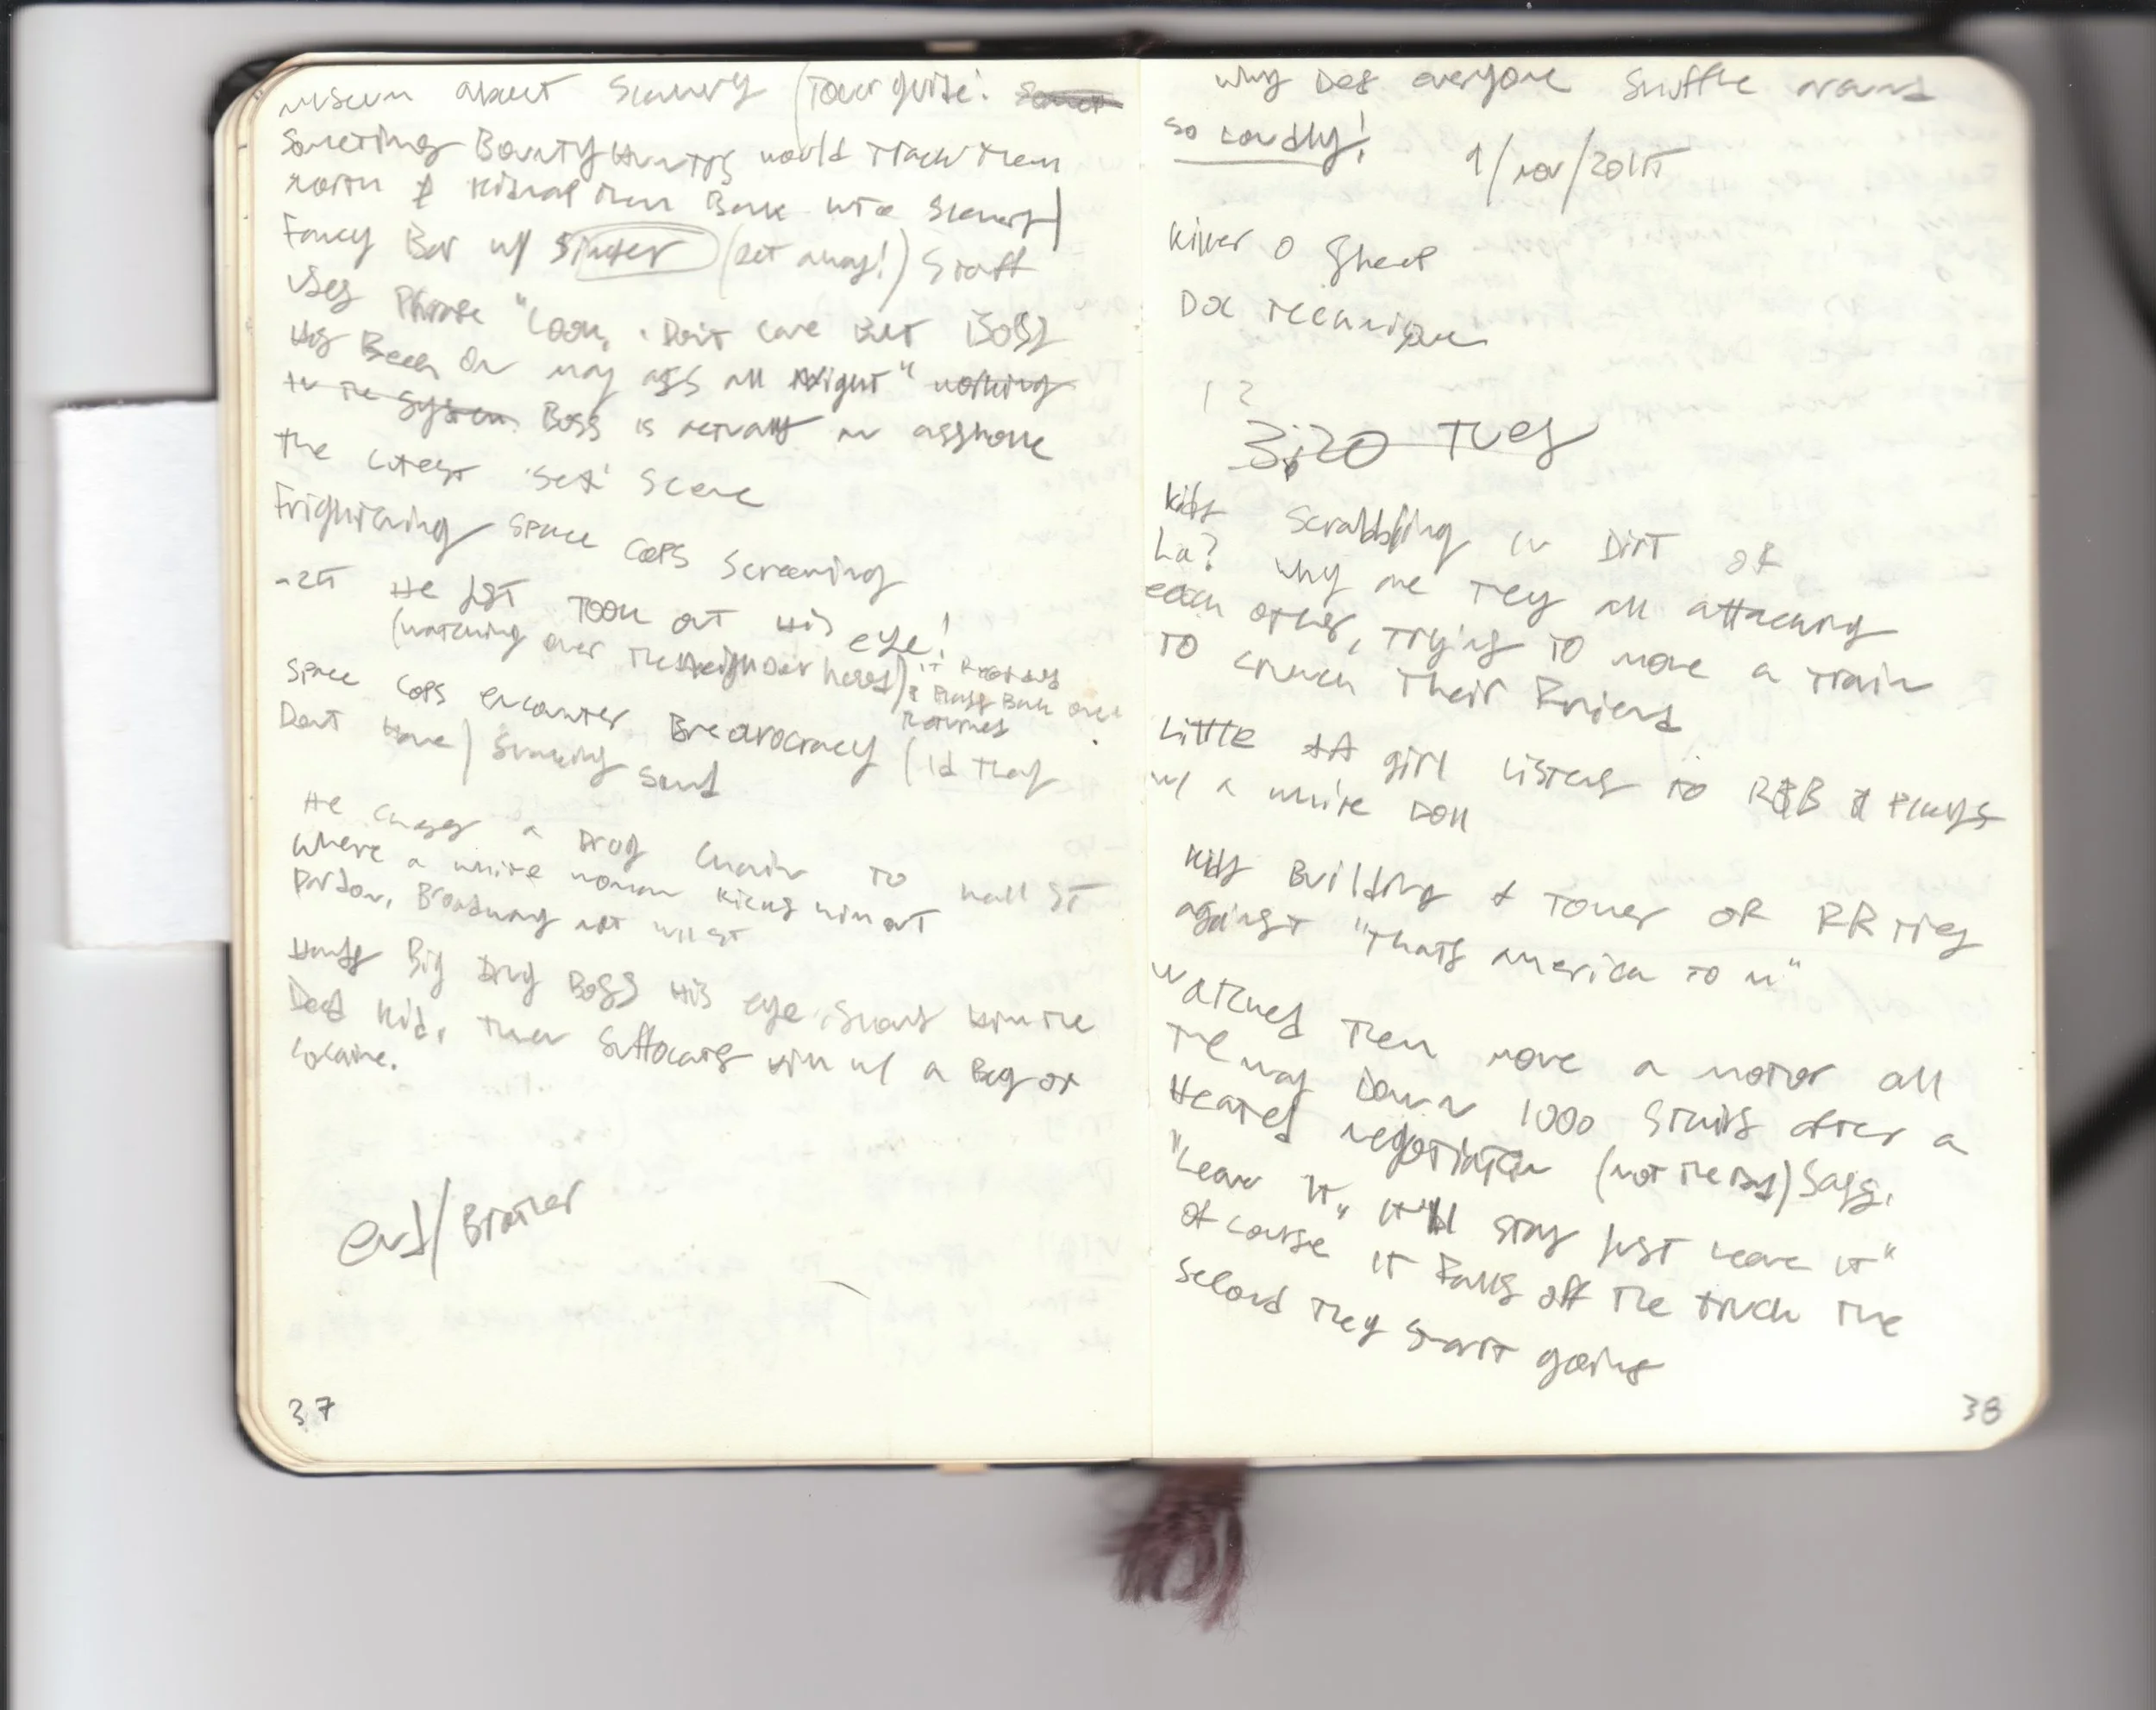 museum about Slavery (Tour guide:
Someting Bounty Hunters would Track them
north & kidnap them Back into Slavery)
Fancy Bar w/ Singer (get away!) Staff
uses Phrase "Look, I Don't care But Boss
Has Been On my ass all Night" working
in the system Boss is actually an asshole
The cutest 'sex' Scene
Frightening space cops screaming
He just Took out His eye!
(watching over the neighborhood) it Records
& Plays Back once
Returned
Space Cops encounter Breaurocracy (Id They
Don't Have) Smoking Sand
He chases a Drug Chain to Wall St
Where a white woman kicks him out
Pardon, Broadway not Wll St
Hands Big Drug Boss His eye, Shows him the
Dead kid, Then Suffocates him w/ a Bag of
Cocaine.
end/Brother
37
Why Does everyone Shuffle around
so Loudly! 9/nov/2015
Killer o Sheep
Doc Technique
12
3:20 Tues
Kids Scrabbling in Dirt of
La? Why are They all attacking
each other, Trying to move a train
To crush Their Friend
Little AA girl Listens to R&B & Plays
w/ a white Doll
Kids Building a Tower of RR ties
against "Thats America to m"
Watched Them move a motor all
The way Down 1000 Stairs after a
Heated negotiation (not the 1st) Says,
"Leave it, it'll stay just leave it"
of course it Falls off the truck the
Second They Start going
38